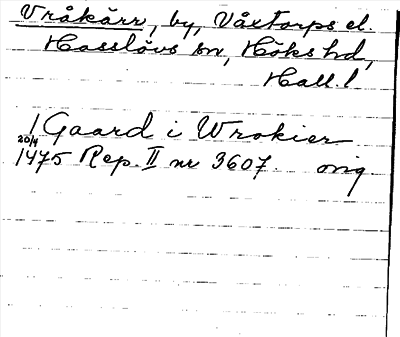 Vråkärr, by, Våxtorps el.
Hasslövs sn, Höks hd,
Hall. l
1 Gaard i Wrakier
20/4
1475 Rep. II nr 3607. orig